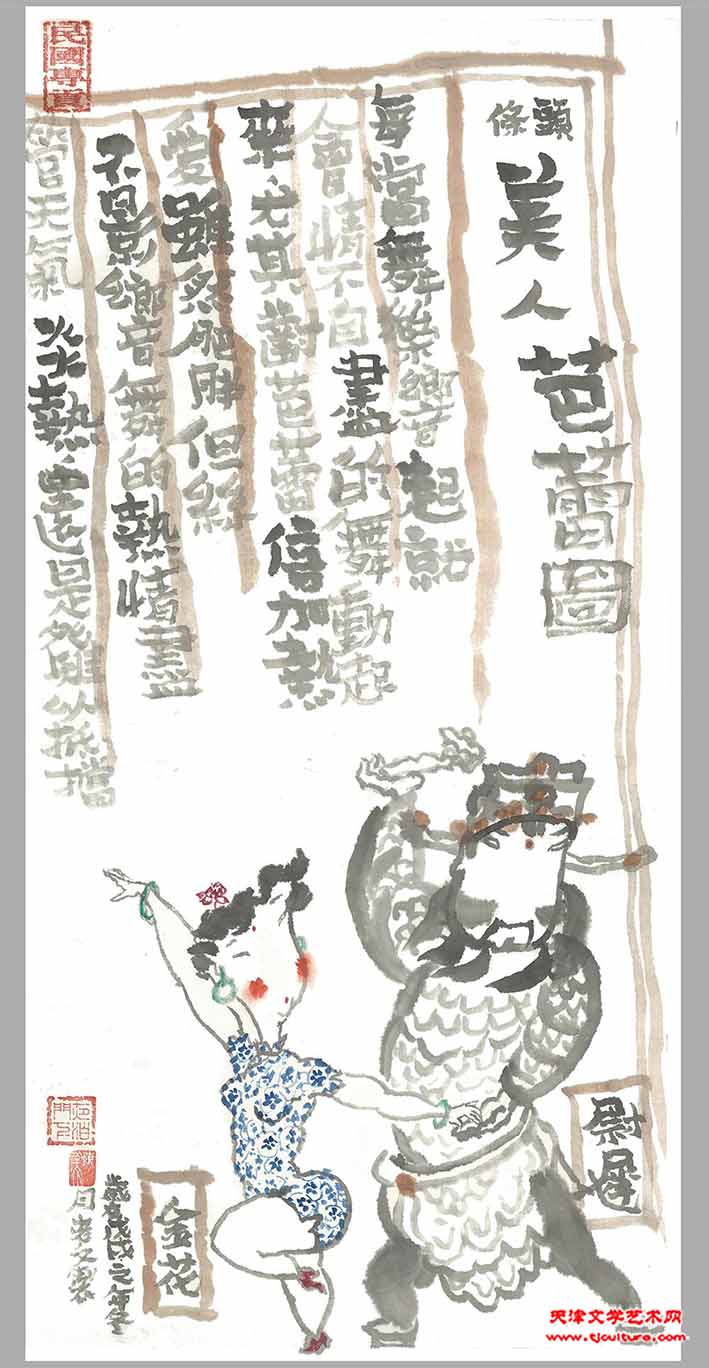 民國專頁
頭條
美人芭蕾圖
每當舞樂響起就
會情不自盡的舞動起
來尤其對芭蕾倍加熱
愛雖然肥胖但絲
不影響舞的熱情盡
管天氣炎熱還是難以抵擋
尉遲
金花
歲在戊戌之年冬
天津文学艺术网
www.tjculture.com